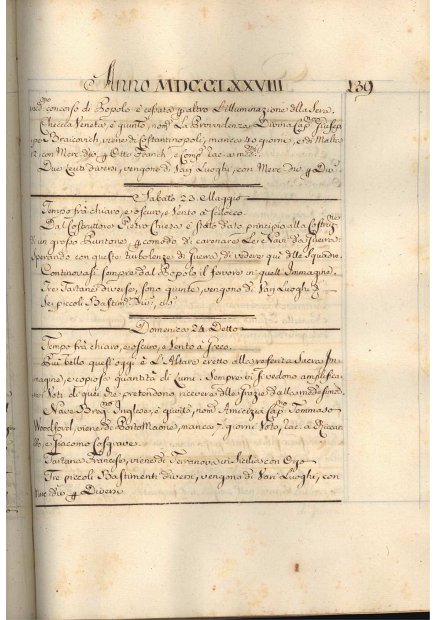 Anno MDCCLXXVIII 139
concorso di Popolo è restata l'altro L'illuminazione della Sera.
Checcia Veneta, è giunto, nom.ª La Providenza Divina Cap.º Giusep
po Braicovich, viene di Costantinopoli, manca 40 giorni, e di Malta
12, con Merc. div.e
Due Leuti diversi, vengono di Varj Luoghi, con Merc. div.e p Div.i
Sabato 23 Maggio
Tempo frà chiaro, e oscuro, e Vento à Scilocco.
Dal Costruttore Pietro Chiesa è stato dato principio alla Costruz.ne
di un grosso Puntone p comodo di carenare Le Navi da Guerra
Sperando con queste turbolenze di Guerra, di vedere qui delle Squadre.
Continovasi sempre dal Popolo il fervore in quell'Immagine.
Tre Tartane diverse, sono giunte, vengono di Varj Luoghi
Sei piccoli Bastim.ti Div.i,
Domenica 24 Detto
Tempo frà chiaro, e oscuro, e Vento à Greco.
Più bello quest'oggi è L'Altare eretto alla Sacra Im-
magine, e copiosa quantità di Lumi. Sempre vi si vedono amplifica
Voti di quei che pretendono ricevere delle Grazie dalla med.ma
Nave Inglese, è giunta, nom.ª America Cap.º Tommaso
Woodford, viene di Porto Maone, manca 7 giorni Voto, rac. à Riccar-
do, e Giacomo Cosgrave.
Tartana Francese, viene di Terranova in Sicilia con Orzo
Tre piccoli Bastimenti diversi, vengono di Varj Luoghi, con
Merc. div.e p Diversi